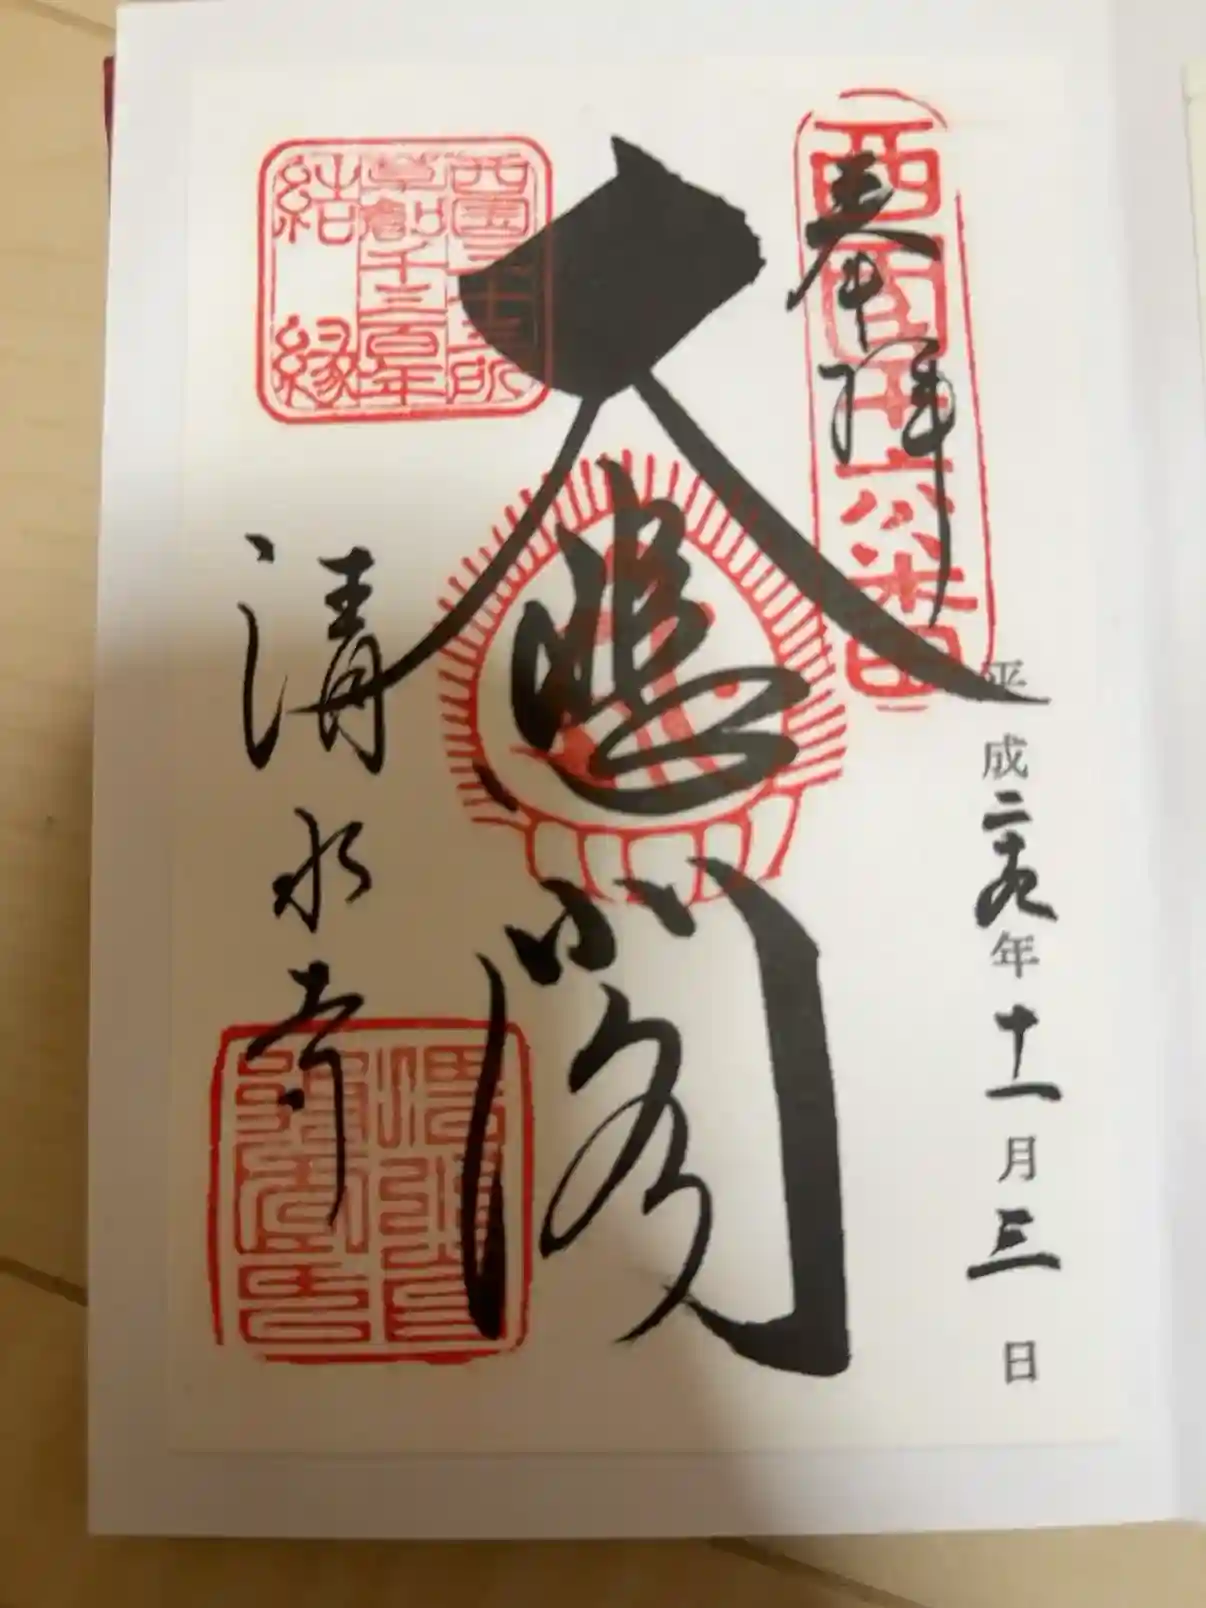 奉拝
西国十六番
平成二十九年十一月三日
大悲閣
西国三十三所
草創千三百年
結縁
清水寺